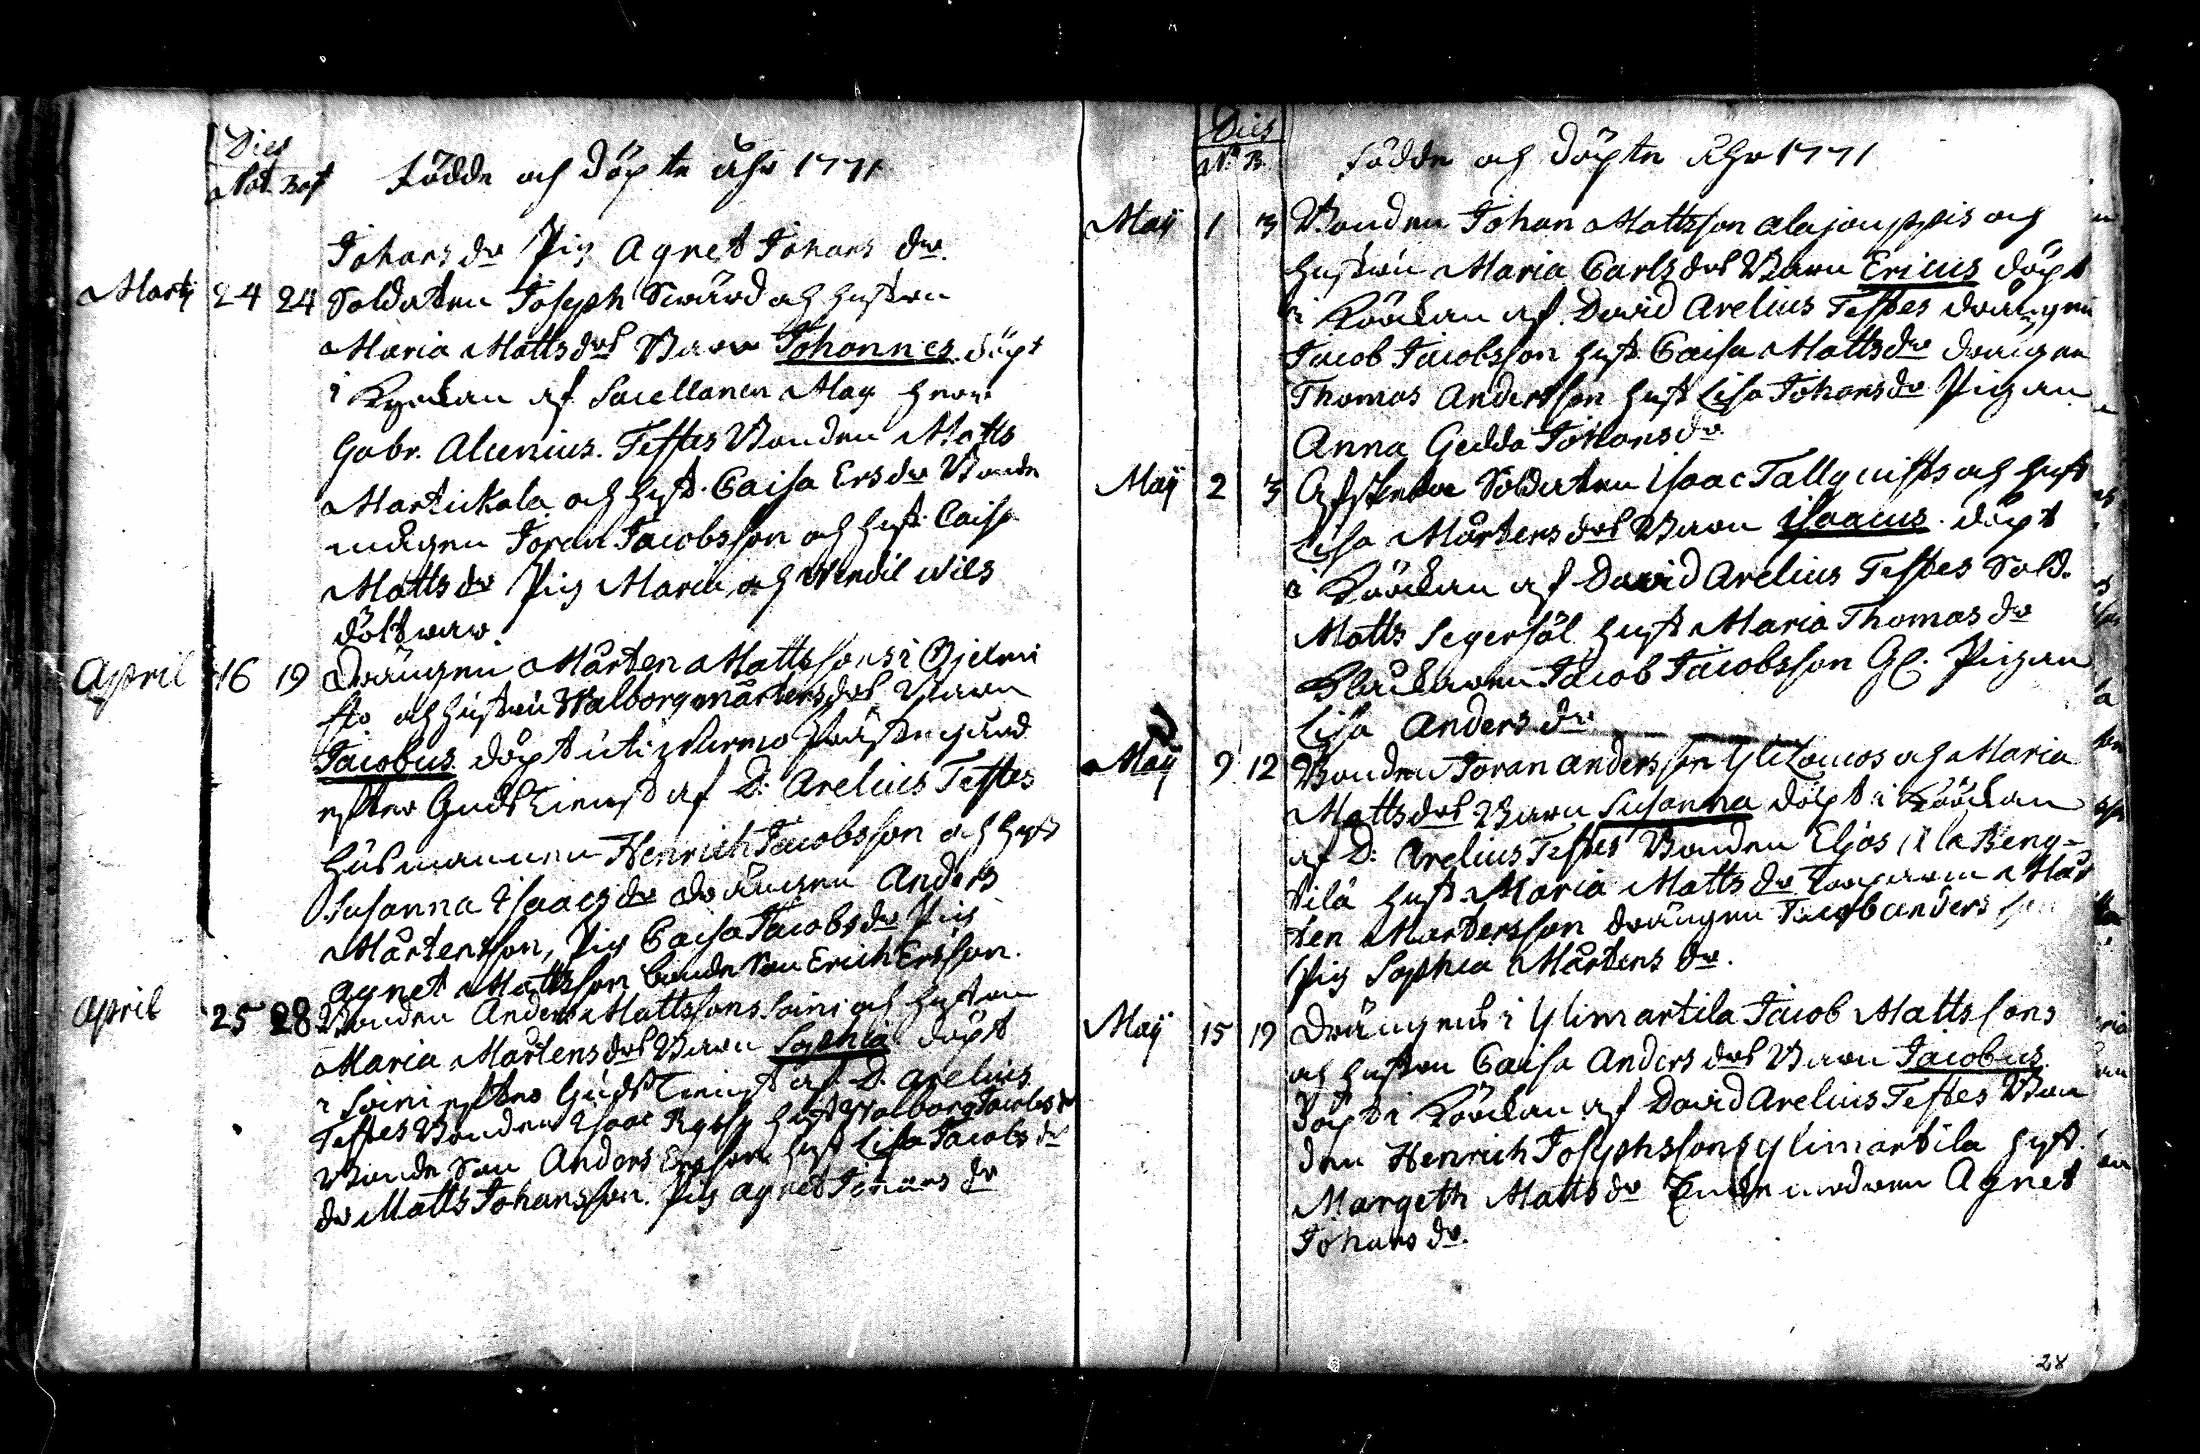 Dies
Nat. Bapt. Födde och döpte åhr 1771
Johans dr Pig Agnet Johans dr.
Marty 24 24 Soldaten Joseph Swärd och hustrun
Maria Matts drs Barn Johannes döpt
i Kyrckan af Sacellanen Mag herr
Gabr. Alcenius. Testes Bonden Matts
Martickala och hust. Caisa Ers dr Bonde
mågen Joran Jacobsson och hust. Caisa
Matts dr Pig Maria och Wendil Nils
döttrar.
April 16 19 Drängen Mårten Mattssons i
och hustrun Walborg Mårtens drs Barn
Jacobus döpt uti Prästegård
efter Gudstienst af D: Arelius Testes
Husmannen Henrich Jacobsson och hust
Susanna Isaacs dr Drängen Anders
Mårtensson, Pig Caisa Jacobs dr Pig
Agnet Mattsson bonde Son Erich Ersson.
April 25 28 Bonden Anders Mattssons Soini och hustrun
Maria Mårtens drs Barn Sophia döpt
i Soini efter Gudstienst af D. Arelius
Testes Bonden Isaac hust Walborg Jacobs dr
Bonde Son Anders Ersson hust Lisa Jacobs dr
dr Matts Johansson. Pig Agnet Johans dr
Dies
N. B. Födde och döpte Åhr 1771
Maij 1 3 Bonden Johan Mattsson Alajouppis och
hustrun Maria Carls drs Barn Ericus döpt
i Körckan af David Arelius Testes drängen
Jacob Jacobsson hust Caisa Matts dr drängen
Thomas Andersson hust Lisa Johans dr Pigan
Anna Gedda Johans dr
Maij 2 3 Afskedade Soldaten Isaac Tallquists och hust
Lisa Mårtens drs Barn Isaacus döpt
i Körckan af David Arelius Testes Sold.
Matts Segersäl hust Maria Thomas dr
Klockaren Jacob Jacobsson Gl. Pigan
Lisa Anders dr
Maij 9 12 Bonden Joran Andersson Yliloucos och Maria
Matts drs Barn Susanna döpt i Körckan
af D: Arelius Testes Bonden Elias Ala Beng-
tilä hust. Maria Matts dr Mår
ten Mårtensson drängen Jacob Andersson
Pig Sophia Mårtens dr.
Maij 15 19 Drängens i Ylimartila Jacob Mattssons
och hustrun Caisa Anders drs Barn Jacobus
döpt i Körckan af David Arelius Testes Bon
den Henrich Josephsson Ylimartila hust.
Margeth Matts dr Agnet
Johans dr.
28